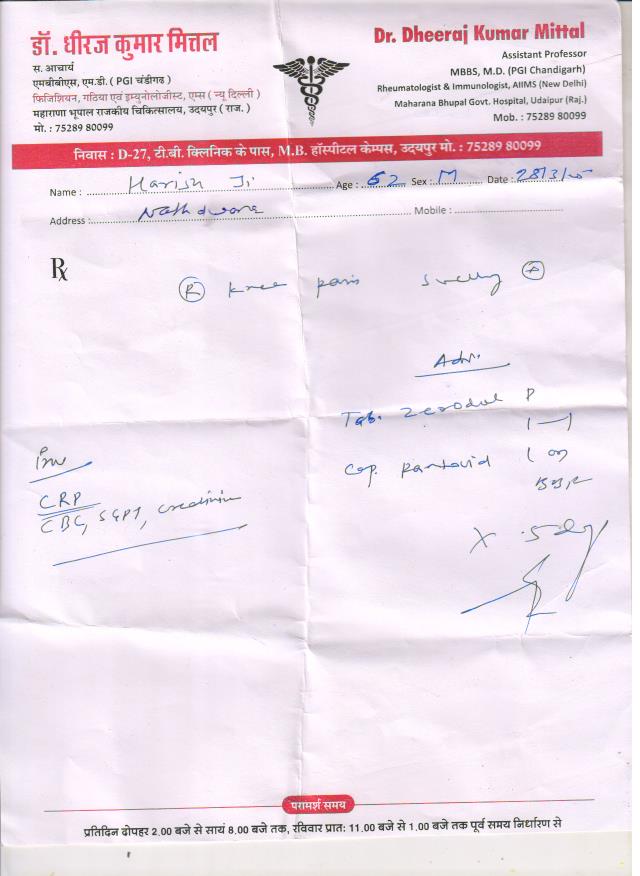 डॉ. धीरज कुमार मित्तल
स. आचार्य
एमबीबीएस, एम.डी. ( PGI चंडीगढ )
फिजिशियन, गठिया एवं इम्युनोलोजीस्ट, एम्स ( न्यू दिल्ली )
महाराणा भूपाल राजकीय चिकित्सालय, उदयपुर ( राज. )
मो. : 75289 80099
Dr. Dheeraj Kumar Mittal
Assistant Professor
MBBS, M.D. (PGI Chandigarh)
Rheumatologist & Immunologist, AIIMS (New Delhi)
Maharana Bhupal Govt. Hospital, Udaipur (Raj.)
Mob. : 75289 80099
निवास : D-27, टी.बी. क्लिनिक के पास, M.B. हॉस्पीटल केम्पस, उदयपुर मो. : 75289 80099
Name : Harish Ji Age : 62 Sex : M Date : 28/3/
Address : Nathdwara Mobile :
Rx
(R) knee pain swelling (+)
Adv:
Tab. Zerodol P
1—1
Cap. Pantovid 1 OD
BBF
X 5 day
Inv
CRP
CBC, SGPT, creatinine
परामर्श समय
प्रतिदिन दोपहर 2.00 बजे से सायं 8.00 बजे तक, रविवार प्रात: 11.00 बजे से 1.00 बजे तक पूर्व समय निर्धारण से